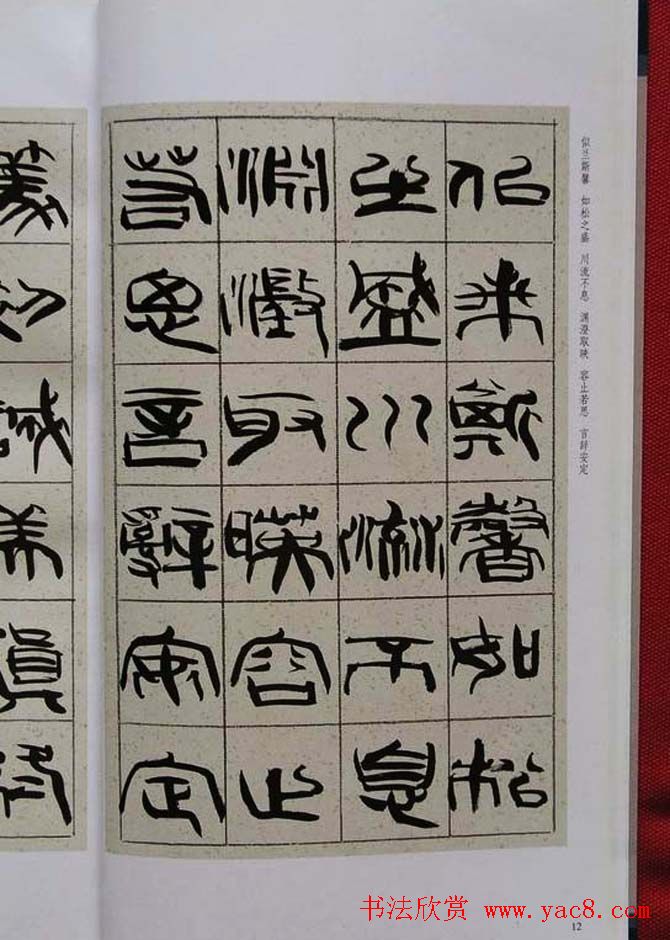 似兰斯馨 如松之盛 川流不息 渊澄取映 容止若思 言辞安定
似兰斯馨如松
之盛川流不息
淵澂取暎容止
若思言辭安定
书法欣赏 www.yac8.com
12